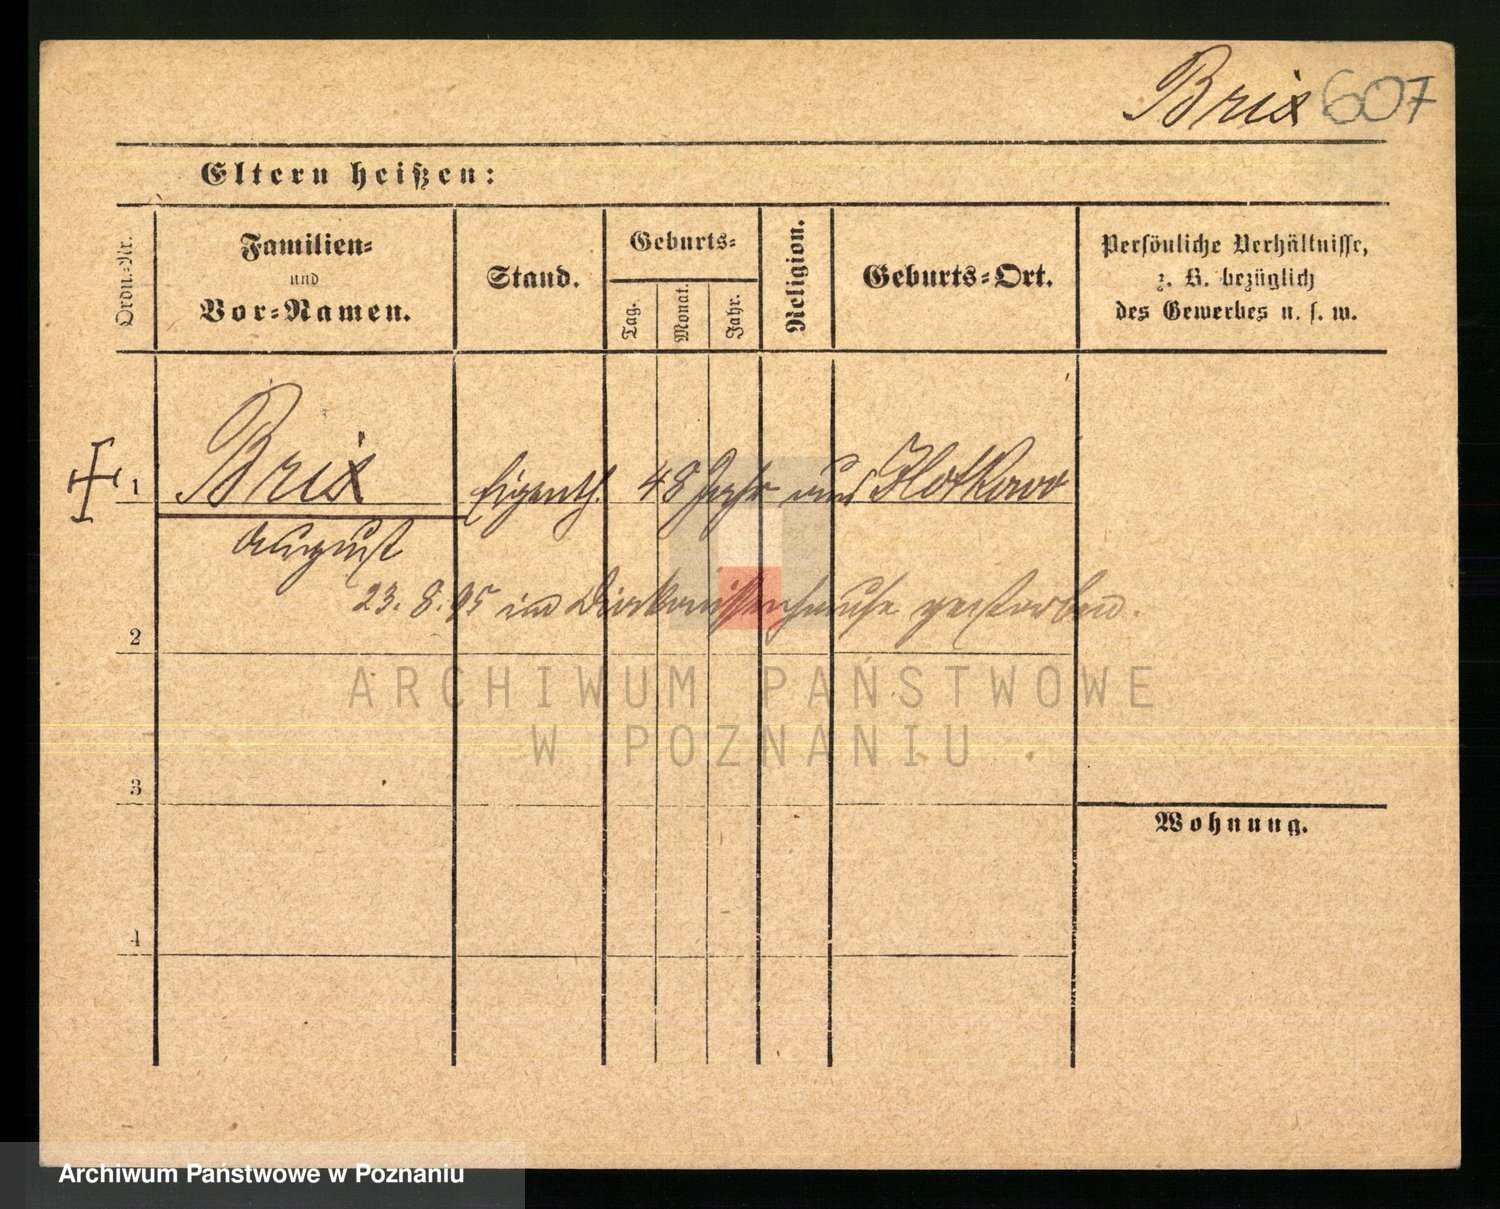 Brix 607
Eltern heißen:
Ordn.=Nr.
Familien=
und
Vor=Namen.
Stand.
Geburts=
Tag.
Monat.
Jahr.
Religion.
Geburts=Ort.
Persönliche Verhältnisse,
z. B. bezüglich
des Gewerbes u. s. w.
1 Brix Eigenth. 48 Jahr aus
August
23. 8. 95 im Diakonissenhause gestorben.
2
ARCHIWUM PAŃSTWOWE
W POZNANIU
3
Wohnung.
4
Archiwum Państwowe w Poznaniu